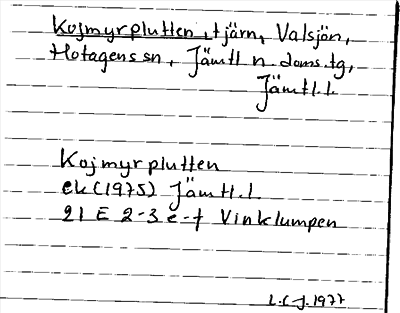 Kojmyrplutten, tjärn, Valsjön,
Hotagens sn, Jämtl. n. doms.tg,
Jämtl.l.
Kojmyrplutten
ek (1975) Jämtl.l.
21 E 2-3 e-f Vinklumpen
1977